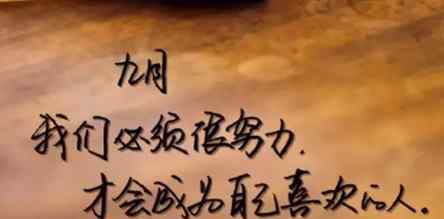 九月
我们必须很努力.
才会成为自己喜欢的人.